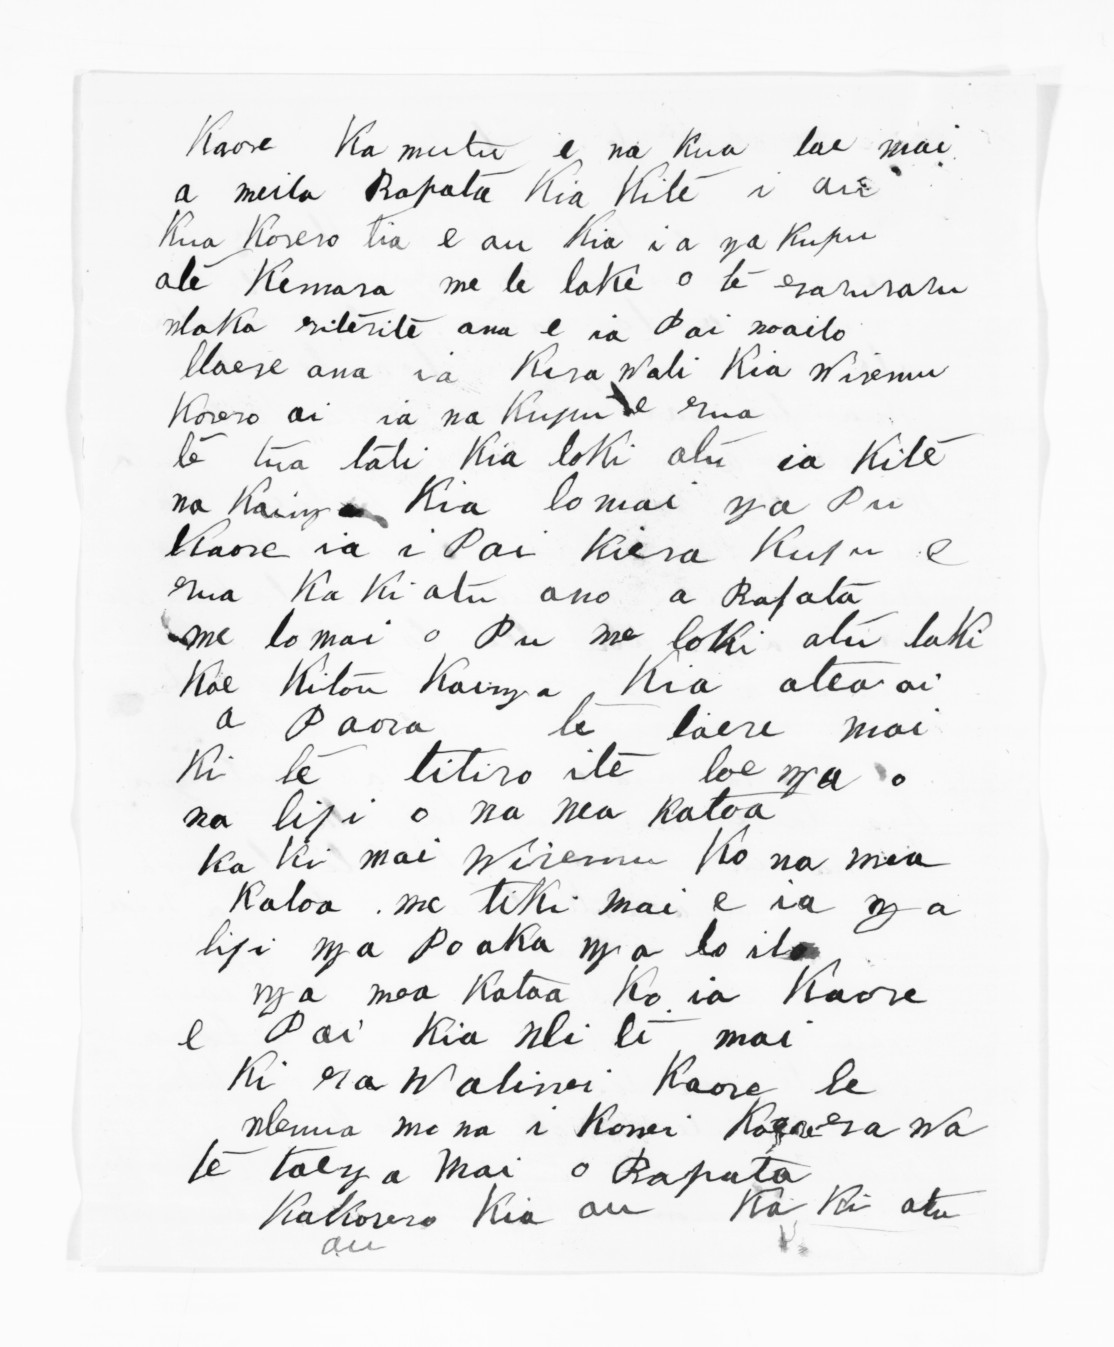 Kaore Ka mutu e na kua tae mai
a meita Rapata Kia Kite i au
Kua Korero tia e au Kia ia nga kupu
ate Kemara me te take o te raruraru
Whaka riterite ana e ia Pai noaito
Haere ana ia Kura Wati Kia Wiremu
Korero ai ia na Kupu e rua
te tua tati Kia toki atu ia Kite
na Kainga Kia tomai nga Pu
Kaore ia i Pai Kiera Kupu e
rua Ka Ki atu ano a Rapata
me tomai o Pu me toki atu taki
Koe Kitou Kainga Kia atea ai
a Paora te taere mai
Ki te titiro ite toenga o
na tipi o na mea Katoa
Ka Ki mai Wiremu Ko na mea
Katoa me tiki mai e ia nga
tipi nga Poaka nga to ito
nga mea Katoa Ko ia Kaore
e Pai Kia Whi te mai
Ki era Watinei Kaore he
Whenua mona i Konei Ko era Wa
te taenga Mai o Rapata
Ka Korero Kia au Ka Ki atu
au